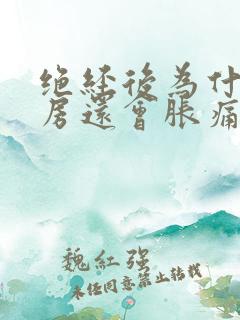 绝经後為什
房還會脹痛
魏紅强
未经同意禁止转载